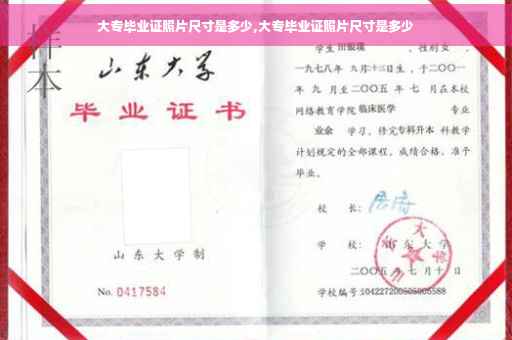 大专毕业证照片尺寸是多少,大专毕业证照片尺寸是多少
样本
山东大学
毕业证书
山东大学制
No. 0417584
学生 性别女，
一九七八年 九月十三日生，于二〇〇一
年 九 月至二〇〇五 年 七 月在本校
网络教育学院 临床医学 专业
业余 学习，修完专科升本 科教学
计划规定的全部课程，成绩合格，准予
毕业。
校 长：
学 校： 山东大学
二〇〇五 年 七月十 日
学校编号:104227200505005588